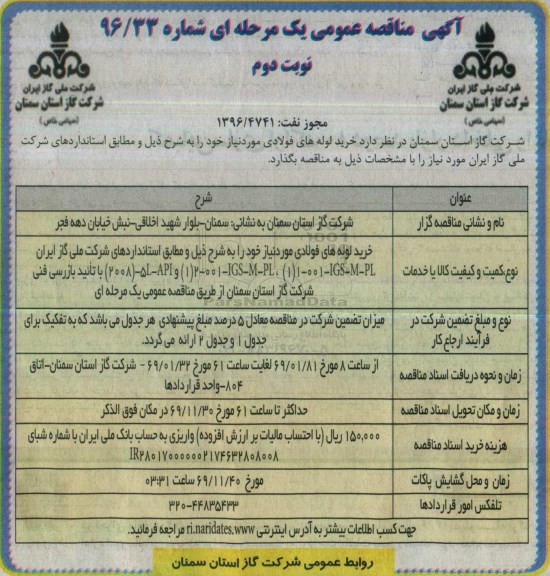 آگهی مناقصه عمومی یک مرحله ای شماره ۹۶/۳۳
نوبت دوم
شرکت ملی گاز ایران
شرکت گاز استان سمنان
(سهامی خاص)
شرکت ملی گاز ایران
شرکت گاز استان سمنان
(سهامی خاص)
مجوز نفت: ۱۳۹۶/۴۷۴۱
شرکت گاز استان سمنان در نظر دارد خرید لوله های فولادی موردنیاز خود را به شرح ذیل و مطابق استانداردهای شرکت
ملی گاز ایران مورد نیاز را با مشخصات ذیل به مناقصه بگذارد.
عنوان
شرح
نام و نشانی مناقصه گزار
شرکت گاز استان سمنان به نشانی: سمنان-بلوار شهید اخلاقی-نبش خیابان دهه فجر
نوع،کمیت و کیفیت کالا یا خدمات
خرید لوله های فولادی موردنیاز خود را به شرح ذیل و مطابق استانداردهای شرکت ملی گاز ایران
IGS-M-PL-۰۰۱-۱(۱) ، IGS-M-PL-۰۰۱-۲(۱) و API-۵L-(۲۰۰۸) با تائید بازرسی فنی
شرکت گاز استان سمنان از طریق مناقصه عمومی یک مرحله ای
نوع و مبلغ تضمین شرکت در
فرآیند ارجاع کار
میزان تضمین شرکت در مناقصه معادل ۵ درصد مبلغ پیشنهادی هر جدول می باشد که به تفکیک برای
جدول ۱ و جدول ۲ ارائه می گردد.
زمان و نحوه دریافت اسناد مناقصه
از ساعت ۸ مورخ ۶۹/۰۱/۸۱ لغایت ساعت ۶۱ مورخ ۶۹/۰۱/۳۲ - شرکت گاز استان سمنان-اتاق
۸۰۴-واحد قراردادها
زمان و مکان تحویل اسناد مناقصه
حداکثر تا ساعت ۶۱ مورخ ۶۹/۱۱/۳۰ در مکان فوق الذکر
هزینه خرید اسناد مناقصه
۱۵۰,۰۰۰ ریال (با احتساب مالیات بر ارزش افزوده) واریزی به حساب بانک ملی ایران با شماره شبای
IR۲۸۰۱۷۰۰۰۰۰۰۲۱۷۴۶۳۲۸۰۸۰۰۸
زمان و محل گشایش پاکات
مورخ ۶۹/۱۱/۴۰ ساعت ۰۳:۳۱
تلفکس امور قراردادها
۳۲۰-۴۴۸۳۵۴۳۳
جهت کسب اطلاعات بیشتر به آدرس اینترنتی ri.naridates.www مراجعه فرمائید.
روابط عمومی شرکت گاز استان سمنان
ParsNamadData